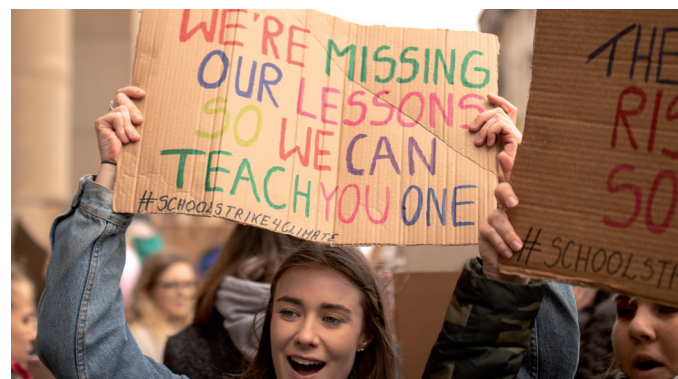 WE'RE MISSING
OUR LESSONS
SO WE CAN
TEACH YOU ONE
#SCHOOLSTRIKE4CLIMATE
THE
RIS
SO
#SCHOOLSTR